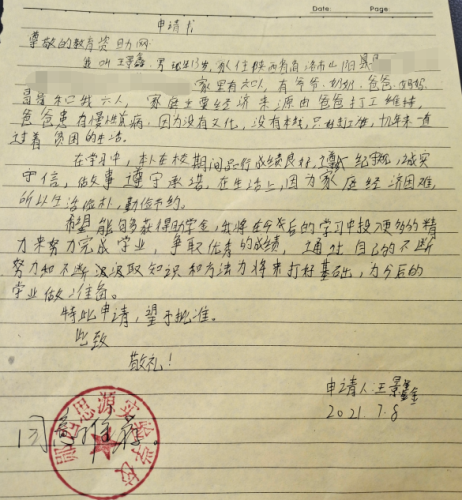 Date: Page:
申请书
尊敬的教育资助网:
我叫王景鑫 男 现年13岁,家住陕西省商洛市山阳县
家里有六口人,有爷爷、奶奶、爸爸、妈妈
和我六人,家庭主要经济来源由爸爸打工维持,
爸爸患有慢性胃病,因为没有文化,没有本钱,只好打工,几年来一直
过着贫困的生活。
在学习中,本人在校期间品行成绩良好,遵守纪规,诚实
守信,做事遵守承诺,在生活上,因为家庭经济困难,
所以生活俭朴,勤俭节约。
希望能够获得助学金,我将在今后的学习中投入更多的精
力来努力完成学业,争取优秀的成绩,通过自己的不断
努力和不断汲取知识和方法为将来打好基础,为今后的
学业做准备。
特此申请,望予批准。
此致
敬礼!
申请人:王景鑫
2021.7.8
同意推荐。
思源实验学校